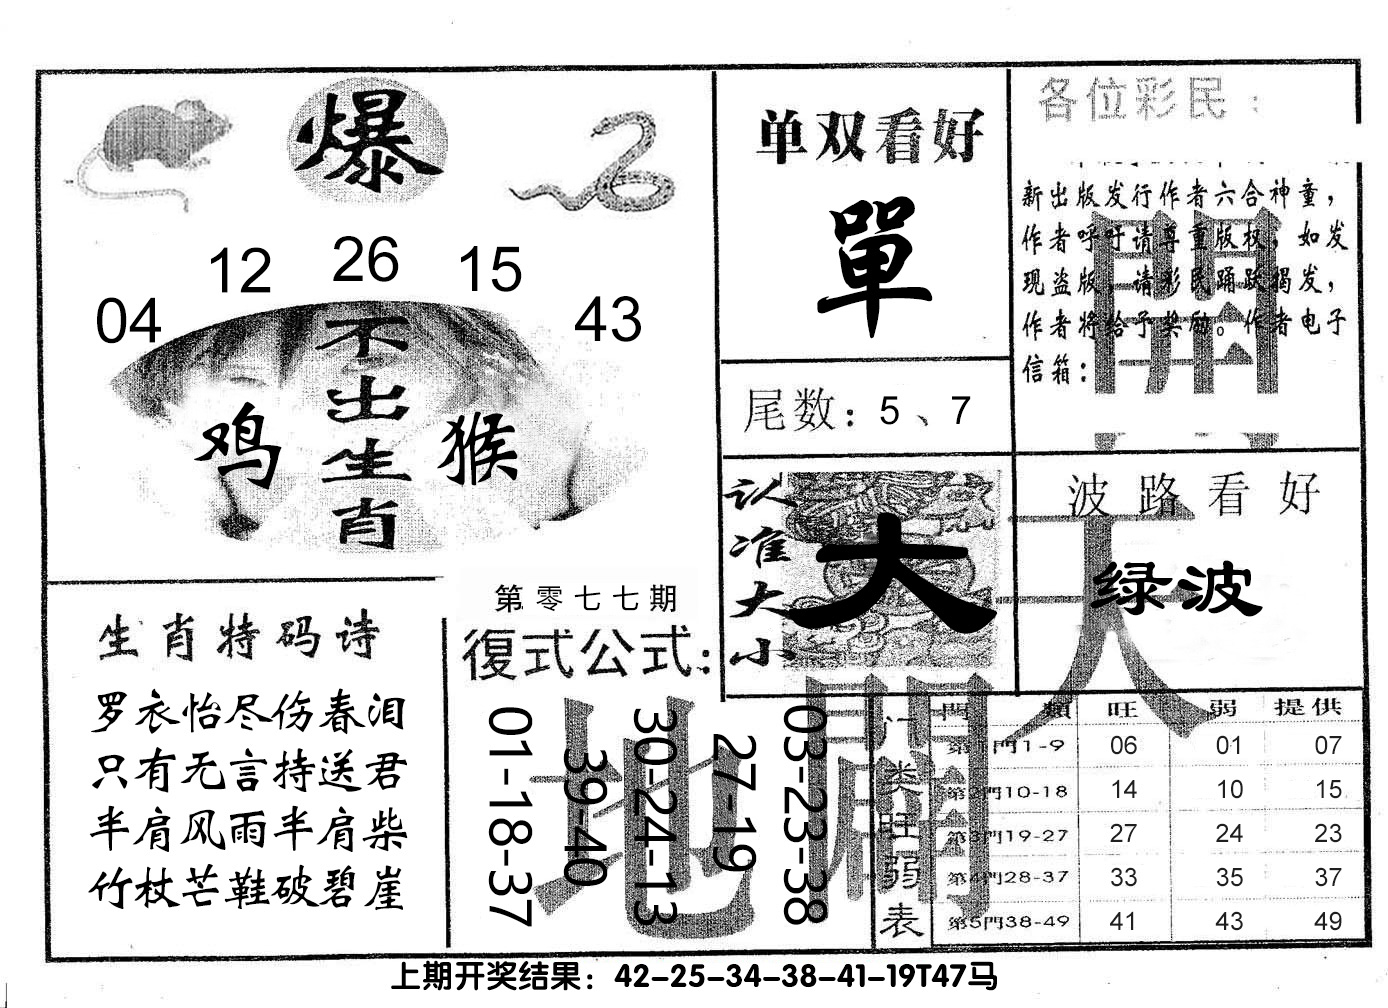 爆
04 12 26 15 43
不出生肖
鸡 猴
单双看好
單
尾数：5、7
各位彩民：
新出版发行作者六合神童，
作者呼吁请尊重版权，如发
现盗版，请彩民踊跃揭发，
作者将给予奖励。作者电子
信箱：
認准大小
大
波路看好
绿波
天
地
開
生肖特码诗
罗衣怡尽伤春泪
只有无言持送君
半肩风雨半肩柴
竹杖芒鞋破碧崖
第零七七期
復式公式：
01-18-37
39-40
30-24-13
27-19
03-23-38
门类旺弱表
門類 旺 弱 提供
第1門1-9 06 01 07
第2門10-18 14 10 15
第3門19-27 27 24 23
第4門28-37 33 35 37
第5門38-49 41 43 49
上期开奖结果：42-25-34-38-41-19T47马